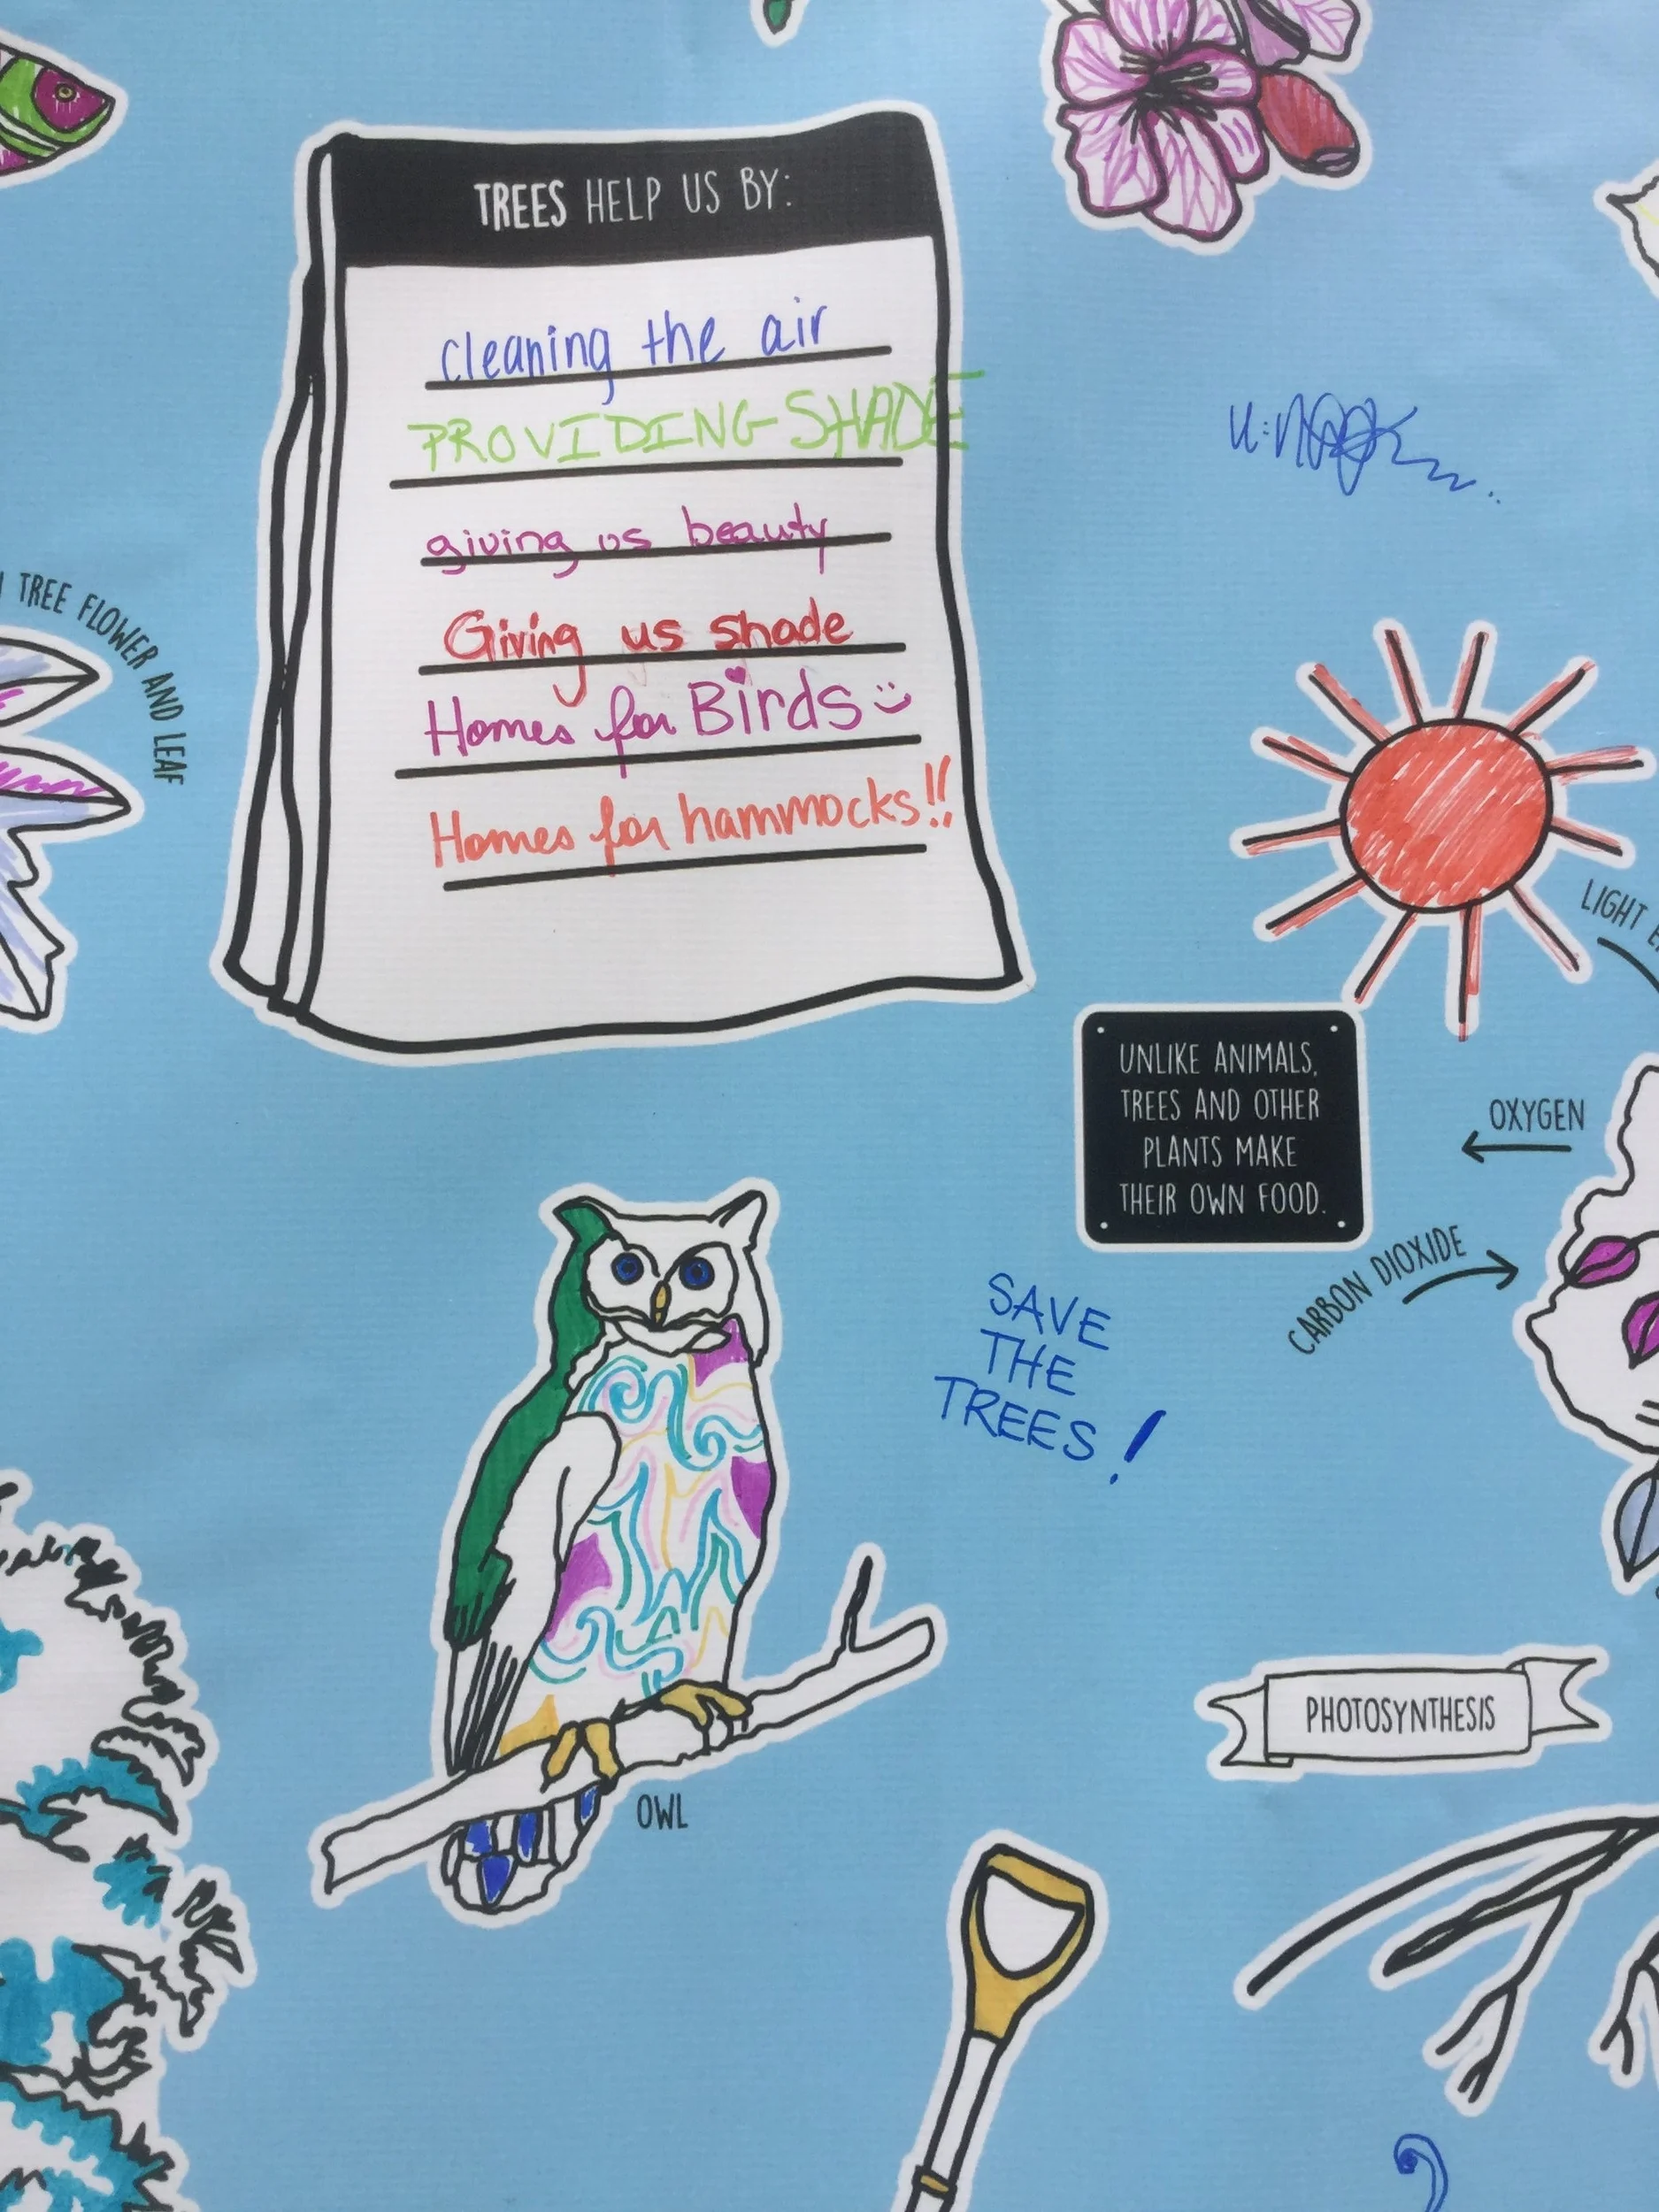 TREES HELP US BY:
cleaning the air
PROVIDING SHADE
giving us beauty
Giving us shade
Homes for Birds
Homes for hammocks!!
TREE FLOWER AND LEAF
LIGHT
UNLIKE ANIMALS,
TREES AND OTHER
PLANTS MAKE
THEIR OWN FOOD.
OXYGEN
CARBON DIOXIDE
SAVE
THE
TREES!
PHOTOSYNTHESIS
OWL